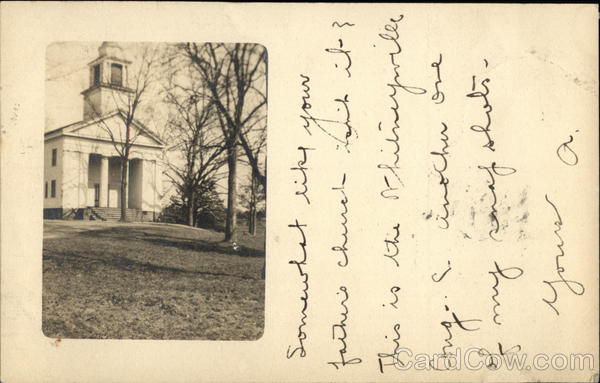 Somewhat like your
father's church - isn't it - ?
This is the Whitneyville
Cong. - & another one
of my snap shots. -
Yours
A.
CardCow.com